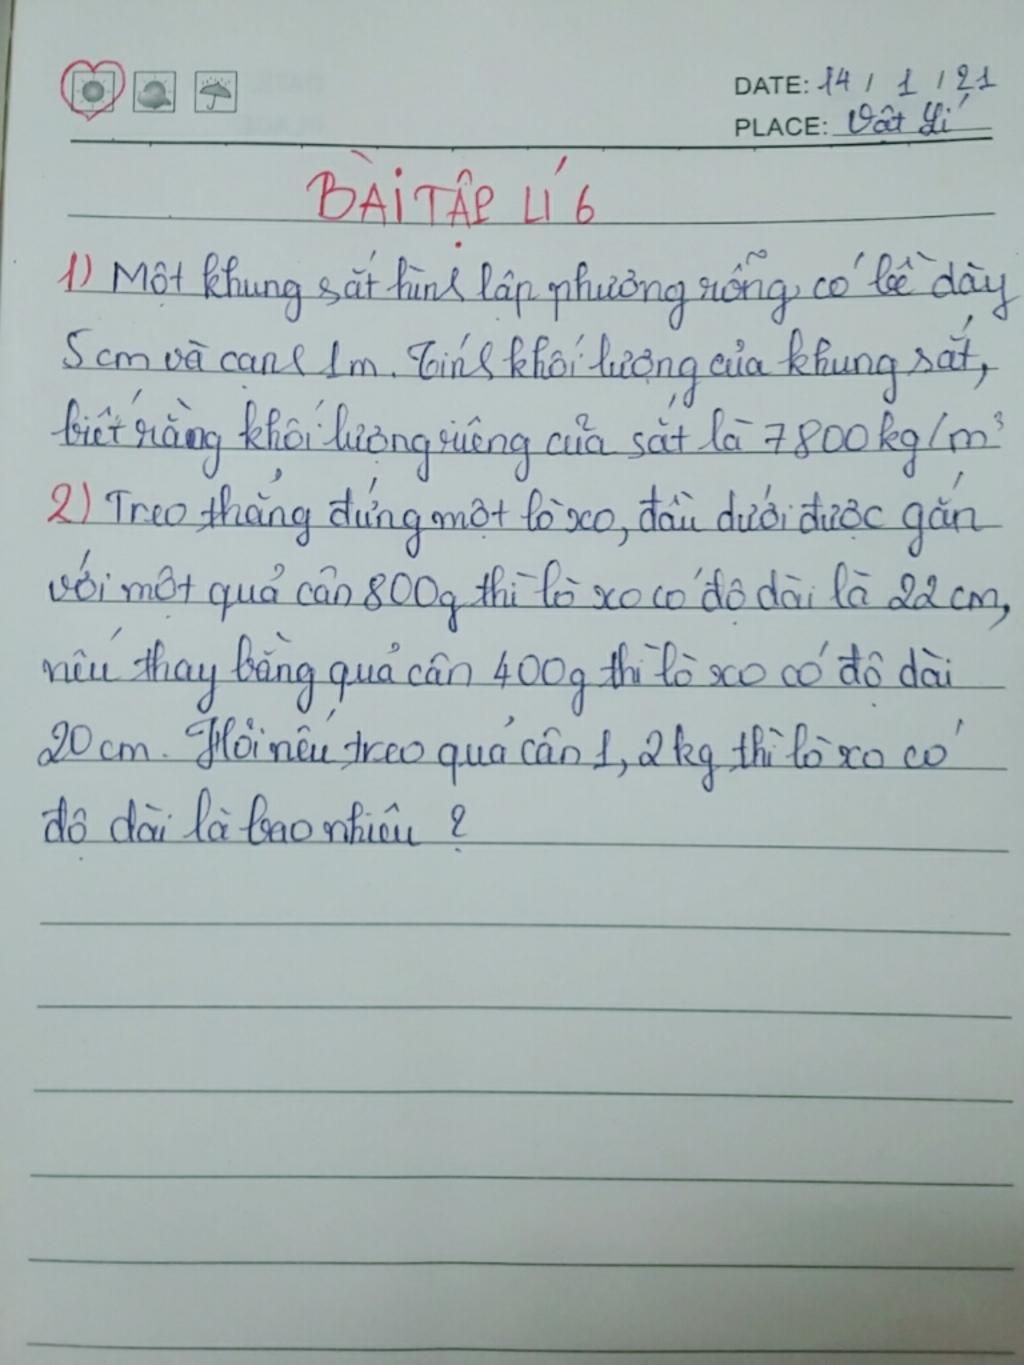 DATE: 14 / 1 / 21
PLACE: Vật Lí
BÀI TẬP LÍ 6
1) Một khung sắt hình lập phương rỗng, có bề dày
5 cm và cạnh 1m. Tính khối lượng của khung sắt,
biết rằng khối lượng riêng của sắt là 7800kg/m³
2) Treo thẳng đứng một lò xo, đầu dưới được gắn
với một quả cân 800g thì lò xo có độ dài là 22 cm,
nếu thay bằng quả cân 400g thì lò xo có độ dài
20 cm. Hỏi nếu treo quả cân 1,2kg thì lò xo có
độ dài là bao nhiêu ?